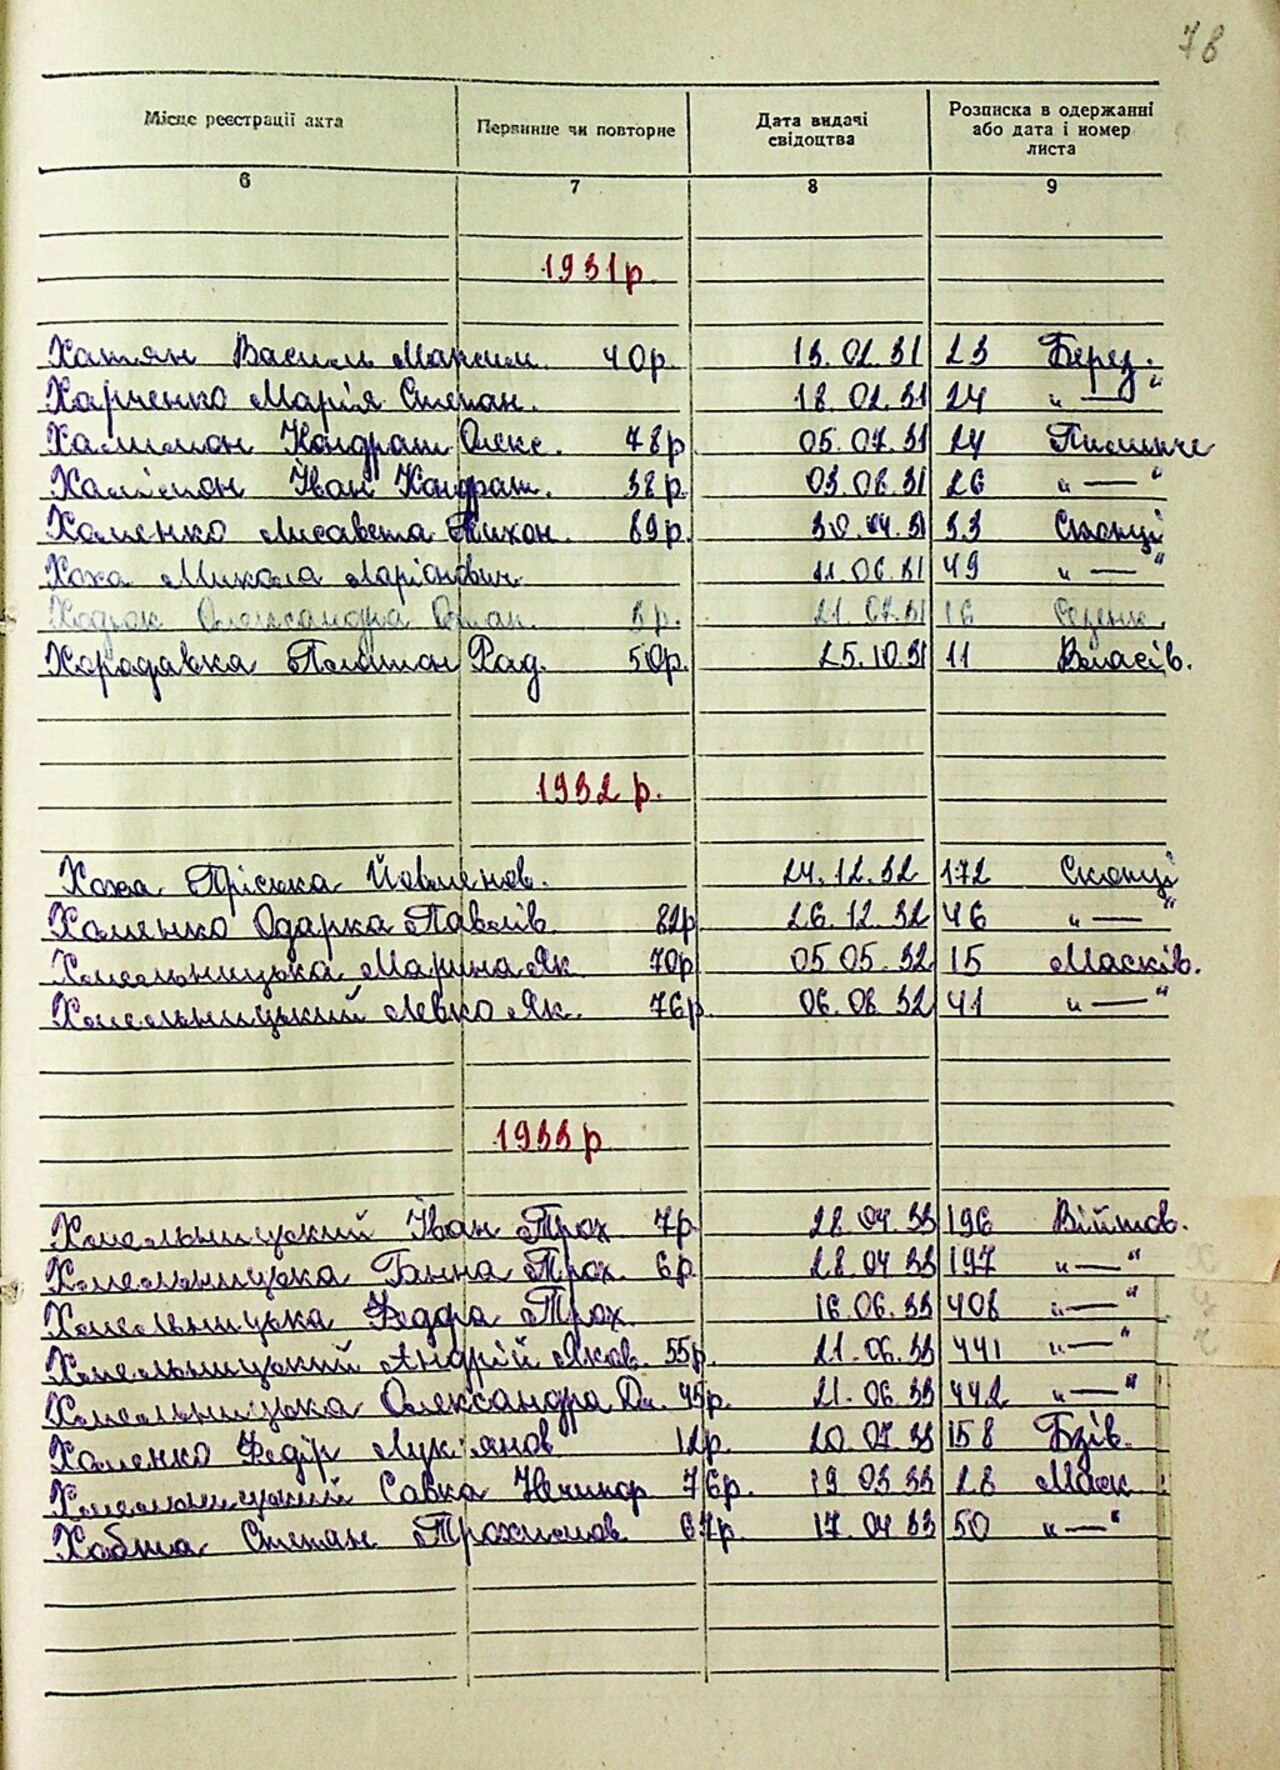 78
Місце реєстрації акта | Первинне чи повторне | Дата видачі свідоцтва | Розписка в одержанні або дата і номер листа
6 | 7 | 8 | 9
1931р.
Хатян Василь Максим. 40р. 13.02.31 23 Берез.
Харченко Марія Степан. 18.02.31 24 " — "
Халимон Кондрат Олекс. 78р. 05.07.31 24
Халімон Іван Кондрат. 38р. 03.08.31 26 " — "
Хоменко Лисавета Тихон. 89р. 30.04.31 33 Скопці
Хоха Микола Ларіонович 11.06.31 49 " — "
Олександра 3р. 21.07.31 16
Хородавка Платон Рад. 50р. 25.10.31 11 Власів.
1932 р.
Хоха Пріська Йовменов. 24.12.32 172 Скопці
Хоменко Одарка Павлів 82р. 26.12.32 46 " — "
Хмельницька Марина Як. 70р. 05.05.32 15 Масків.
Хмельницький Левко Як. 76р. 06.08.32 41 " — "
1933р.
Хмельницький Іван Трох. 7р. 28.04.33 196 Війтов.
Хмельницька Ганна Трох. 6р. 28.04.33 197 " — "
Хмельницька Федора Трох. 16.06.33 408 " — "
Хмельницький Андрій Яков. 55р. 21.06.33 441 " — "
Хмельницька Олександра Дм. 45р. 21.06.33 442 " — "
Хоменко Федір Лук'янов 12р. 20.07.33 158 Бзів.
Хмельницький Савка Нечипор 76р. 19.03.33 28 Маск.
Хобта Степан Трохимов. 67р. 17.04.33 50 " — "